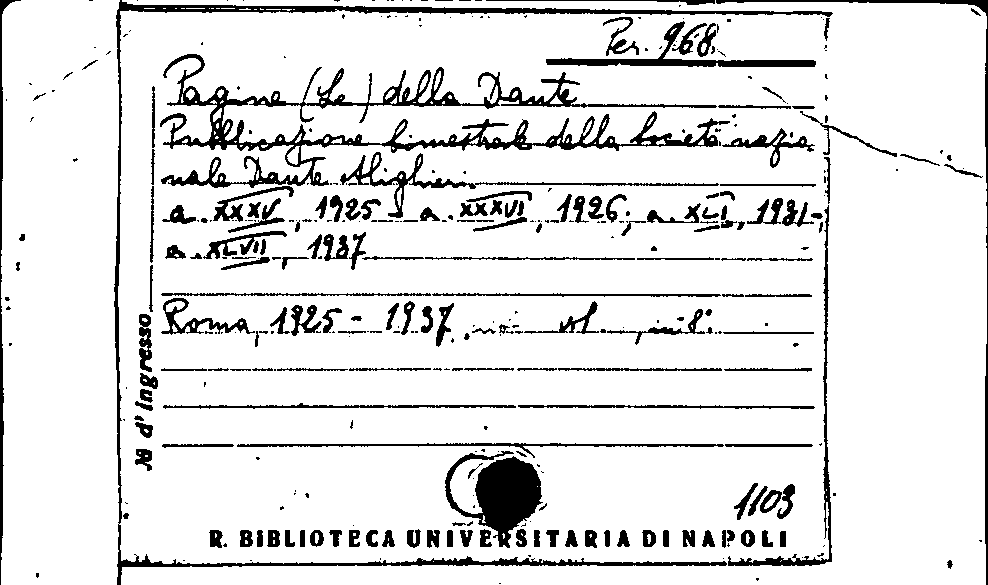 Per. 968.
Pagine (Le) della Dante
Pubblicazione bimestrale della Società nazio-
nale Dante Alighieri.
a. XXXV, 1925 - a. XXXVI, 1926; a. XLI, 1931-
a. XLVII, 1937.
Roma, 1925 - 1937, in 8°.
N° d'ingresso
1103
R. BIBLIOTECA UNIVERSITARIA DI NAPOLI